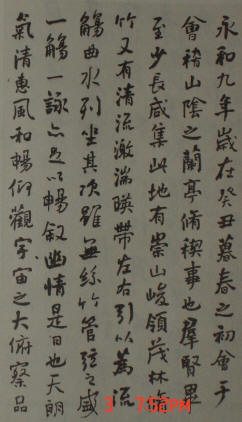 永和九年歲在癸丑暮春之初會于
會稽山陰之蘭亭脩禊事也羣賢畢
至少長咸集此地有崇山峻領茂林脩
竹又有清流激湍暎帶左右引以為流
觴曲水列坐其次雖無絲竹管弦之盛
一觴一詠亦足以暢敘幽情是日也天朗
氣清惠風和暢仰觀宇宙之大俯察品
3 7:52PM